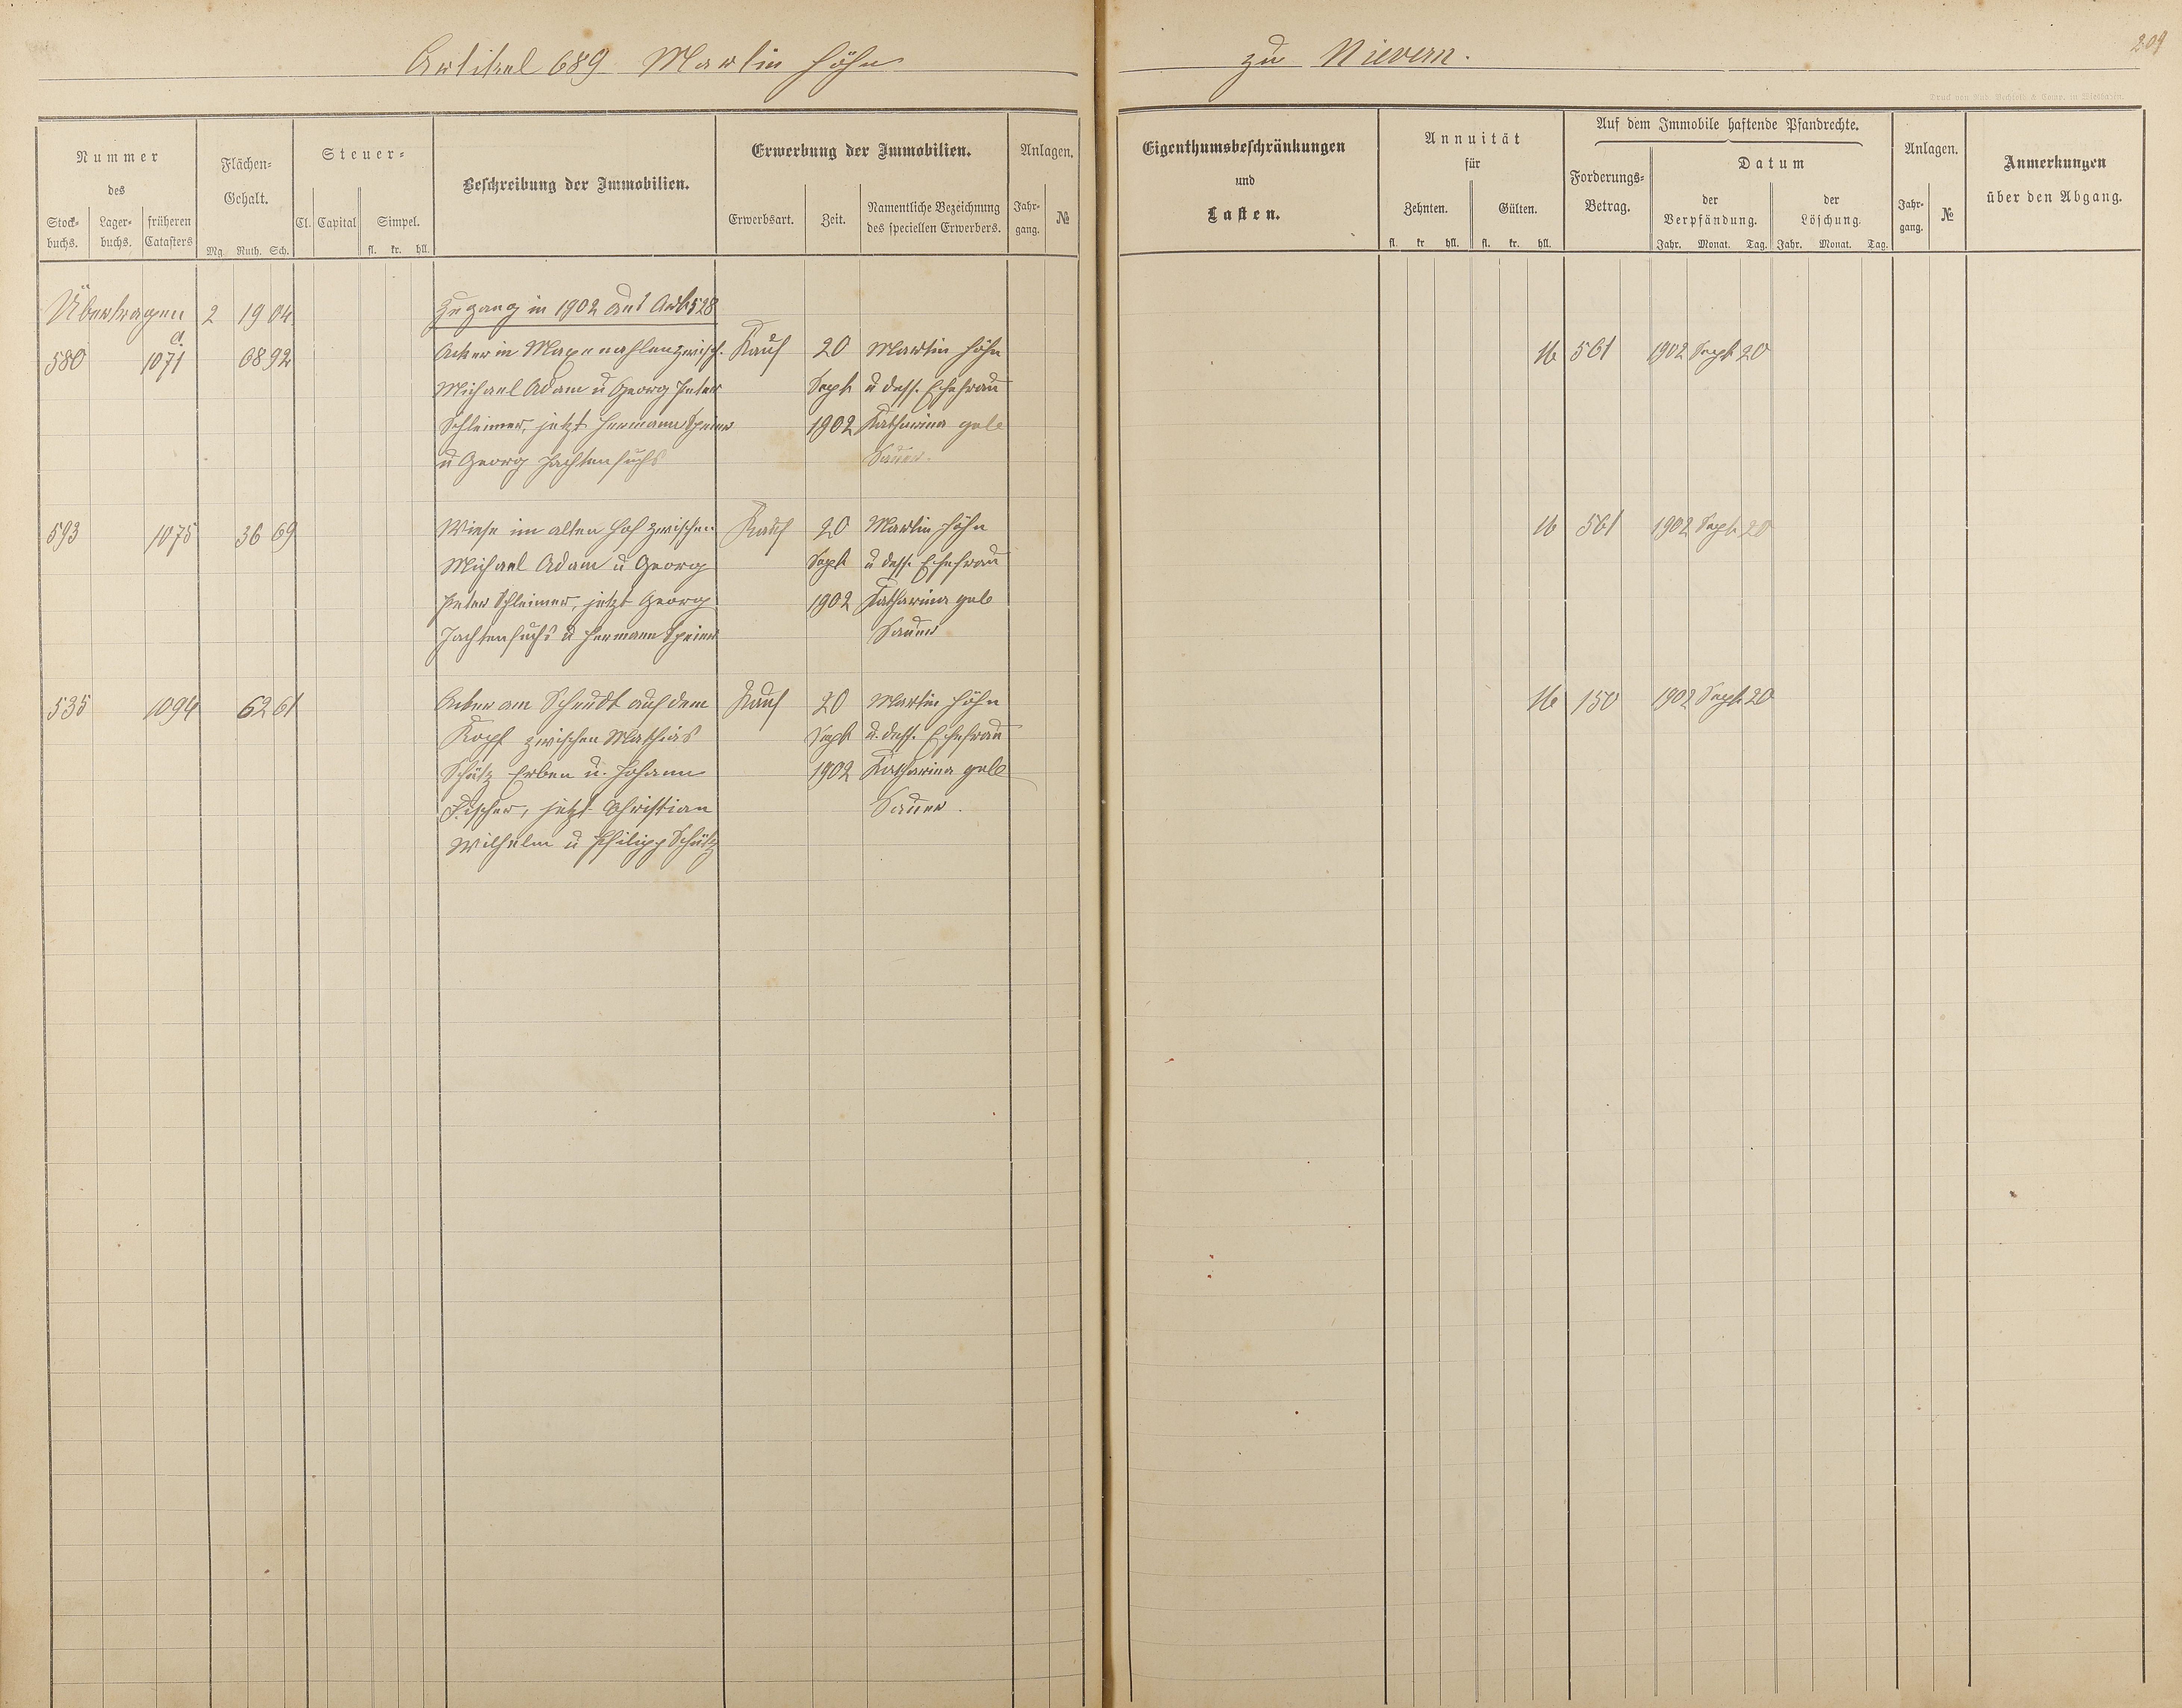 Artikel 689 Martin Höhn
zu Nievern.
209
Nummer
des
Stock-
buchs.
Lager-
buchs.
früheren
Catasters
Flächen-
Gehalt.
Mg. Ruth. Sch.
Steuer-
Cl. Capital Simpel.
fl. kr. hll.
Beschreibung der Immobilien.
Erwerbung der Immobilien.
Erwerbsart. Zeit.
Namentliche Bezeichnung
des speciellen Erwerbers.
Anlagen.
Jahr-
gang.
№
Eigenthumsbeschränkungen
und
Lasten.
Annuität
für
Zehnten. Gülten.
fl. kr hll. fl. kr. hll.
Auf dem Immobile haftende Pfandrechte.
Forderungs-
Betrag.
Datum
der
Verpfändung.
der
Löschung.
Jahr. Monat. Tag. Jahr. Monat. Tag.
Anlagen.
Jahr-
gang.
№
Anmerkungen
über den Abgang.
Übertragen 2 19 04 Zugang in 1902 aus Art 528
580 1071 a. 68 92 Acker in zwisch. Kauf 20 Martin Höhn 561 1902 Sept 20
Michael Adam u Georg Peter Sept u dess. Ehefrau
Schleimer, jetzt Hermann Speier 1902 Katharina geb
u Georg Jachtenfuchs Sauer.
593 1075 36 69 Wiese im alten Hof zwischen Kauf 20 Martin Höhn 561 1902 Sept 20
Michael Adam u Georg Sept u dess. Ehefrau
Peter Schleimer, jetzt Georg 1902 Katharina geb
Jachtenfuchs u Hermann Speier Sauer
535 1094 62 61 Acker am auf dem Kauf 20 Martin Höhn 150 1902 Sept 20
Kopf zwischen Mathias Sept u. dess. Ehefrau
Schütz Erben u. Johann 1902 Katharina geb
Fischer, jetzt Christian Sauer.
Wilhelm u Philipp Schütz